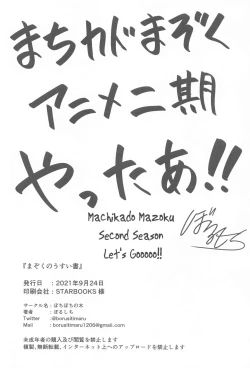 まちカドまぞく
アニメ二期
やったあ!!
Machikado Mazoku
Second Season
Let's Gooooo!!
ぼるしち
『まぞくのうすい書』
発行日　：2021年9月24日
印刷会社：STARBOOKS 様
サークル名：ぼちぼちの木
著者　　　：ぼるしち
Twitter　　:@borusitimaru
Mail　　　: borusitimaru1206@gmail.com
未成年者の購入及び閲覧を禁止します
複製、無断転載、インターネット上へのアップロードを禁止します